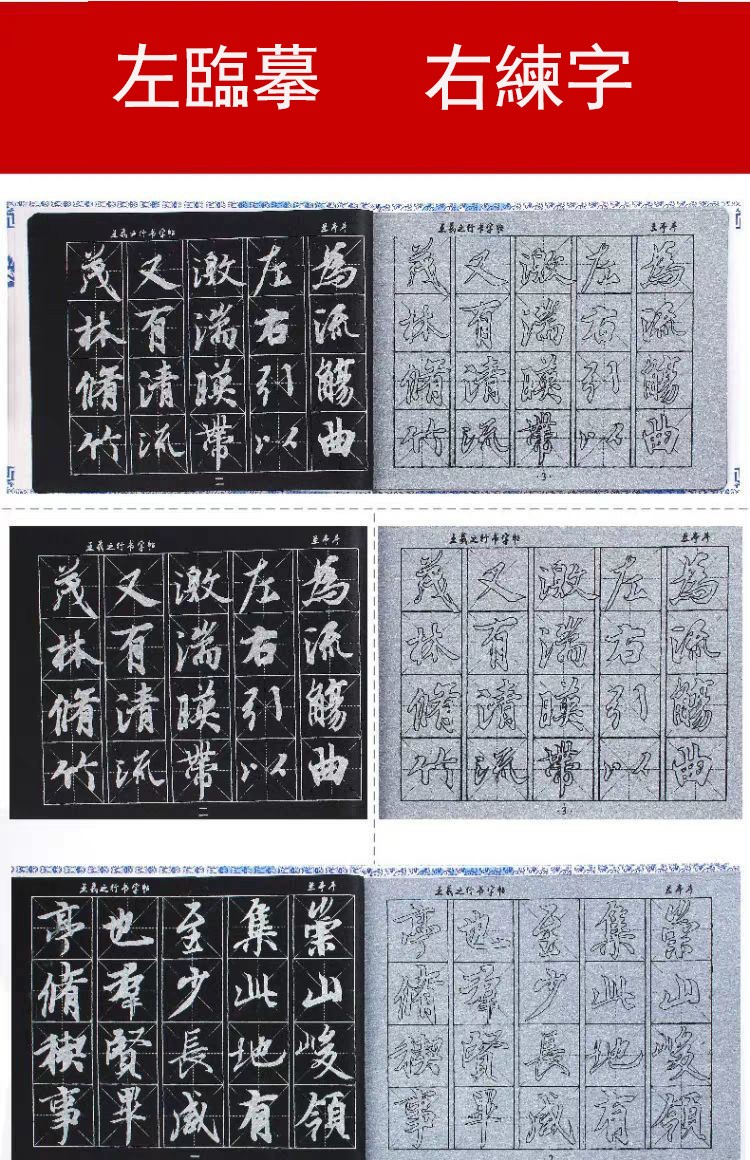 左臨摹 右練字
王羲之行书字帖 兰亭序
茂林脩竹
又有清流
激湍暎帶
左右引以
為流觴曲
二
王羲之行书字帖 兰亭序
茂林脩竹
又有清流
激湍暎帶
左右引以
為流觴曲
·3·
王羲之行书字帖 兰亭序
茂林脩竹
又有清流
激湍暎帶
左右引以
為流觴曲
二
王羲之行书字帖 兰亭序
茂林脩竹
又有清流
激湍暎帶
左右引以
為流觴曲
·3·
王羲之行书字帖 兰亭序
亭脩稧事
也羣賢畢
至少長咸
集此地有
崇山峻領
一
王羲之行书字帖 兰亭序
亭脩稧事
也羣賢畢
至少長咸
集此地有
崇山峻領